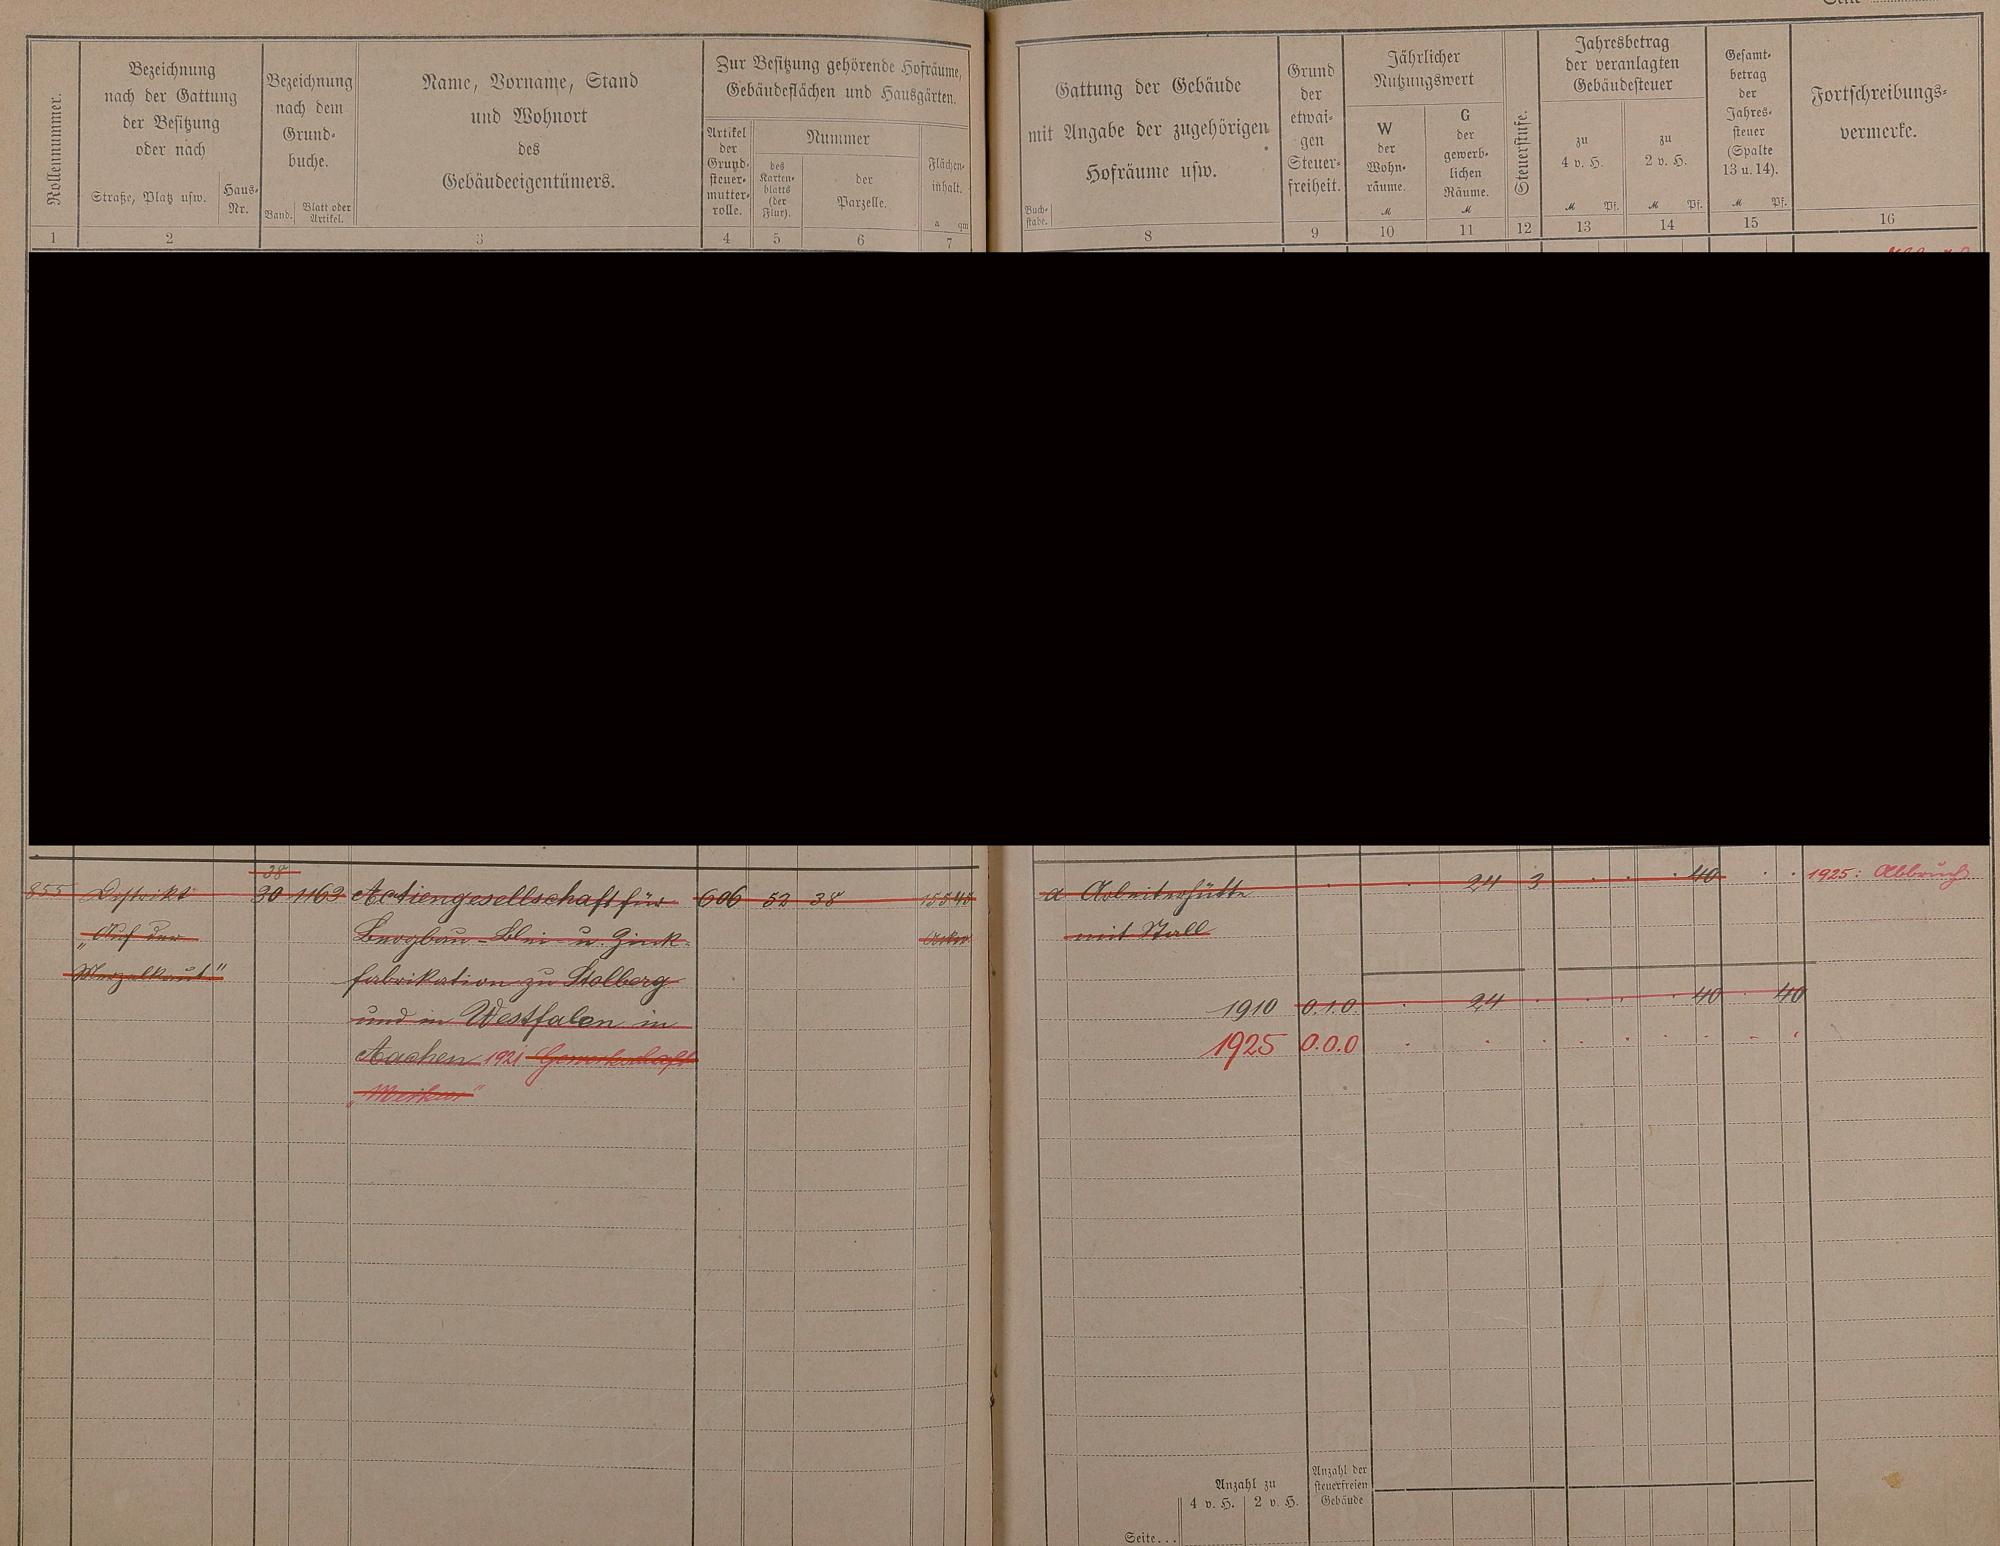 Seite
Rollennummer.
Bezeichnung
nach der Gattung
der Besitzung
oder nach
Straße, Platz usw.
Haus-
Nr.
Bezeichnung
nach dem
Grund-
buche.
Band.
Blatt oder
Artikel.
Name, Vorname, Stand
und Wohnort
des
Gebäudeeigentümers.
Zur Besitzung gehörende Hofräume,
Gebäudeflächen und Hausgärten.
Artikel
der
Grund-
steuer-
mutter-
rolle.
Nummer
des
Karten-
blatts
(der
Flur).
der
Parzelle.
Flächen-
inhalt.
a qm
1 2 3 4 5 6 7
Gattung der Gebäude
mit Angabe der zugehörigen
Hofräume usw.
Buch-
stabe.
Grund
der
etwai-
gen
Steuer-
freiheit.
Jährlicher
Nutzungswert
W
der
Wohn-
räume.
M
G
der
gewerb-
lichen
Räume.
M
Steuerstufe.
Jahresbetrag
der veranlagten
Gebäudesteuer
zu
4 v. H.
M Pf.
zu
2 v. H.
M Pf.
Gesamt-
betrag
der
Jahres-
steuer
(Spalte
13 u. 14).
M Pf.
Fortschreibungs-
vermerke.
8 9 10 11 12 13 14 15 16
38
855 Distrikt 30 1163 Actiengesellschaft für 606 52 38 15540
"Auf der Bergbau-Blei- u. Zink-
fabrikation zu Stolberg
und in Westfalen in
Aachen 1921 Gewerkschaft
"Merkur"
a Arbeiterhütte 24 3 40 1925: Abbruch
mit Stall
1910 0.1.0. 24 40 40
1925 0.0.0
Anzahl zu
4 v. H. 2 v. H.
Anzahl der
steuerfreien
Gebäude
Seite...